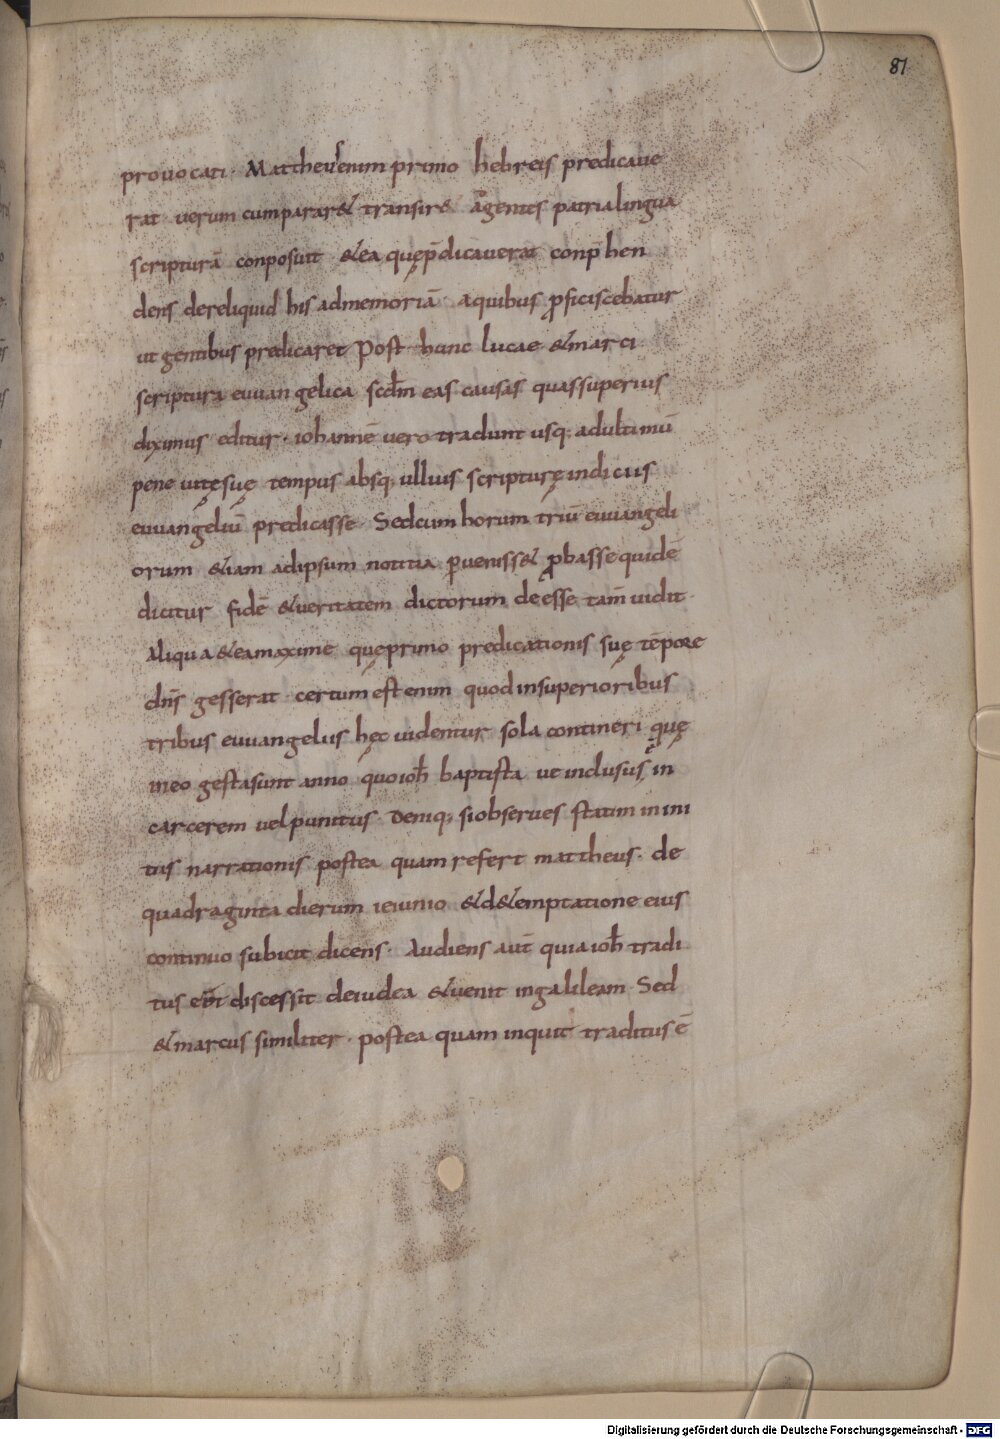 87
provocati · Mattheus enim primo hebreis predicave
rat · verum cum pararet transire ad gentes patria lingua
scripturā conposuit & ea quę p̄dicaverat conp̄hen
dens dereliquid his ad memoriā · a quibus proficiscebatur
ut gentibus predicaret Post hunc lucae & marci
scriptura euuangelica scdm eas causas quas superius
diximus editur · iohannē vero tradunt usq; ad ultimū
pene vitę suę tempus absq; ullius scripturę indiciis
euuangeliū predicasse · Sed cum horum triū euuangeli
orum &iam ad ipsum notitia perveniss& probasse quidē
dicitur fidē & veritatem dictorum deesse tam̄ vidit ·
Aliqua & ea maxime quę primo predicationis suę tēpore
dn̄s gesserat · certum est enim quod in superioribus
tribus euuangeliis hęc videntur sola contineri quę
in eo gesta sunt anno quo ioh̄ baptista vel inclusus in
carcerem vel punitus · Deniq; si observes statim in ini
tiis narrationis postea quam refert mattheus · de
quadraginta dierum ieiunio & d& emptatione eius
continuo subicit dicens · Audiens aut̄ quia ioh̄ tradi
tus discessit de iudea & venit in galileam · Sed
& marcus similiter · postea quam inquit traditus ē
Digitalisierung gefördert durch die Deutsche Forschungsgemeinschaft - DFG